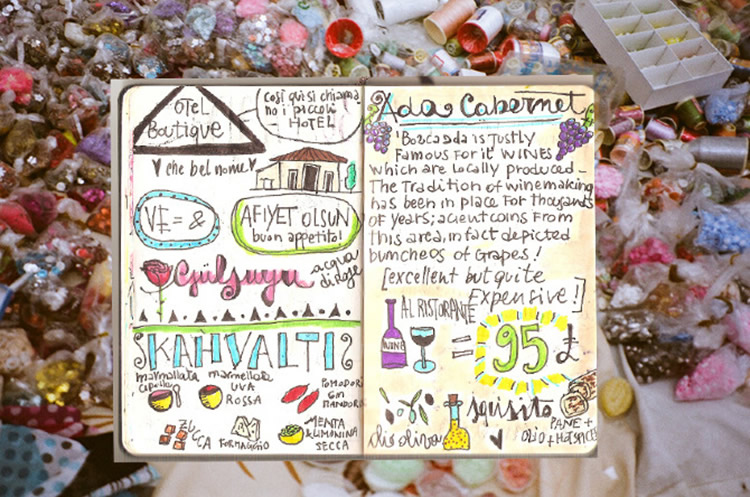 OTEL
BOUTIQUE
così qui si chiama
no i piccoli
HOTEL
che bel nome
VE = &
AFIYET OLSUN
buon appetito!
Gülsuyu
acqua
di rose
KAHVALTI
marmellata
marmellata
UVA
ROSSA
POMODORI
CON
MANDORLA
ZUCCA
FORMAGGIO
MENTA
& LIMONINA
SECCA
Ada Cabernet
'Bozcaada is JUSTLY
FAMOUS FOR it' WINES
which are locally produced –
The TRadition of winemaking
has been in place FOR thousands
OF years; acient coins From
this area, in fact depicted
bumcheos of Grapes!
[excellent but quite
Expensive!]
AL RISTORANTE
WINE
= 95 ₤
squisito
olio oliva
PANE +
OLIO + HOT SPICES